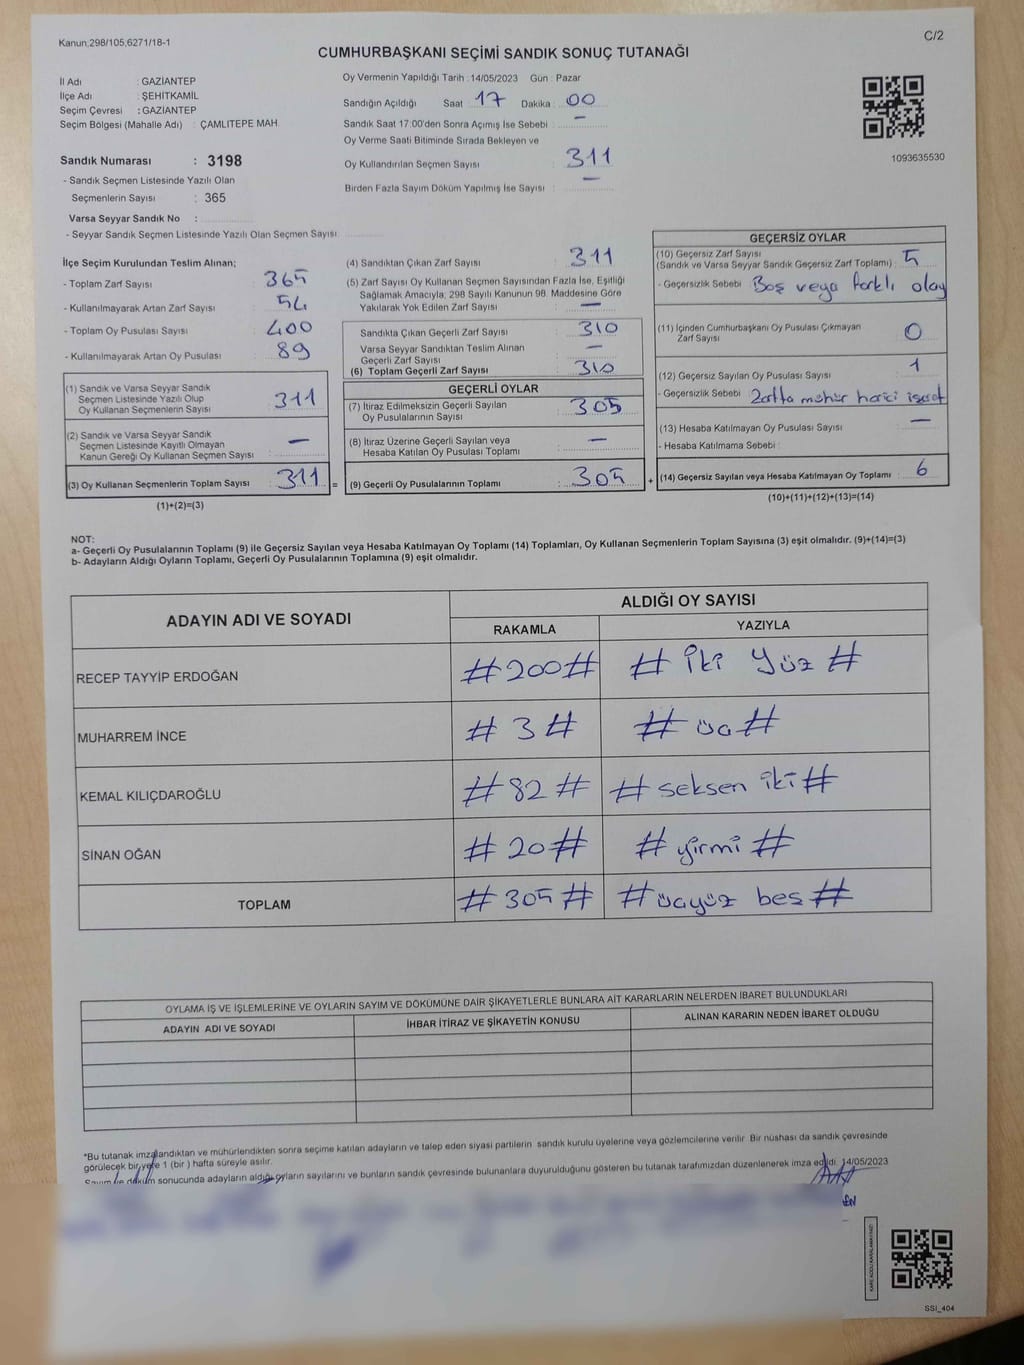 Kanun;298/105,6271/18-1
C/2
CUMHURBAŞKANI SEÇİMİ SANDIK SONUÇ TUTANAĞI
İl Adı : GAZİANTEP
İlçe Adı : ŞEHİTKAMİL
Seçim Çevresi : GAZİANTEP
Seçim Bölgesi (Mahalle Adı) : ÇAMLITEPE MAH.
Sandık Numarası : 3198
- Sandık Seçmen Listesinde Yazılı Olan
Seçmenlerin Sayısı : 365
Varsa Seyyar Sandık No :
- Seyyar Sandık Seçmen Listesinde Yazılı Olan Seçmen Sayısı:
Oy Vermenin Yapıldığı Tarih : 14/05/2023 Gün : Pazar
Sandığın Açıldığı Saat : 17 Dakika : 00
Sandık Saat 17:00'den Sonra Açımış İse Sebebi : –
Oy Verme Saati Bitiminde Sırada Bekleyen ve
Oy Kullandırılan Seçmen Sayısı : 311
Birden Fazla Sayım Döküm Yapılmış İse Sayısı : –
1093635530
İlçe Seçim Kurulundan Teslim Alınan;
- Toplam Zarf Sayısı : 365
- Kullanılmayarak Artan Zarf Sayısı : 54
- Toplam Oy Pusulası Sayısı : 400
- Kullanılmayarak Artan Oy Pusulası : 89
(1) Sandık ve Varsa Seyyar Sandık
Seçmen Listesinde Yazılı Olup
Oy Kullanan Seçmenlerin Sayısı : 311
(2) Sandık ve Varsa Seyyar Sandık
Seçmen Listesinde Kayıtlı Olmayan
Kanun Gereği Oy Kullanan Seçmen Sayısı : –
(3) Oy Kullanan Seçmenlerin Toplam Sayısı : 311 =
(1)+(2)=(3)
(4) Sandıktan Çıkan Zarf Sayısı : 311
(5) Zarf Sayısı Oy Kullanan Seçmen Sayısından Fazla İse, Eşitliği
Sağlamak Amacıyla; 298 Sayılı Kanunun 98. Maddesine Göre
Yakılarak Yok Edilen Zarf Sayısı : –
Sandıkta Çıkan Geçerli Zarf Sayısı : 310
Varsa Seyyar Sandıktan Teslim Alınan
Geçerli Zarf Sayısı : –
(6) Toplam Geçerli Zarf Sayısı : 310
GEÇERLİ OYLAR
(7) İtiraz Edilmeksizin Geçerli Sayılan
Oy Pusulalarının Sayısı : 305
(8) İtiraz Üzerine Geçerli Sayılan veya
Hesaba Katılan Oy Pusulası Toplamı : –
(9) Geçerli Oy Pusulalarının Toplamı : 305 +
GEÇERSİZ OYLAR
(10) Geçersiz Zarf Sayısı
(Sandık ve Varsa Seyyar Sandık Geçersiz Zarf Toplamı) : 5
- Geçersizlik Sebebi : Boş veya farklı olay
(11) İçinden Cumhurbaşkanı Oy Pusulası Çıkmayan
Zarf Sayısı : 0
(12) Geçersiz Sayılan Oy Pusulası Sayısı : 1
- Geçersizlik Sebebi : Zarfta mühür harici işaret
(13) Hesaba Katılmayan Oy Pusulası Sayısı : –
- Hesaba Katılmama Sebebi :
(14) Geçersiz Sayılan veya Hesaba Katılmayan Oy Toplamı : 6
(10)+(11)+(12)+(13)=(14)
NOT:
a- Geçerli Oy Pusulalarının Toplamı (9) ile Geçersiz Sayılan veya Hesaba Katılmayan Oy Toplamı (14) Toplamları, Oy Kullanan Seçmenlerin Toplam Sayısına (3) eşit olmalıdır. (9)+(14)=(3)
b- Adayların Aldığı Oyların Toplamı, Geçerli Oy Pusulalarının Toplamına (9) eşit olmalıdır.
ADAYIN ADI VE SOYADI
ALDIĞI OY SAYISI
RAKAMLA YAZIYLA
RECEP TAYYİP ERDOĞAN #200# # İki Yüz #
MUHARREM İNCE # 3 # # üç #
KEMAL KILIÇDAROĞLU # 82 # # seksen iki #
SİNAN OĞAN # 20 # # yirmi #
TOPLAM # 305 # # üçyüz beş #
OYLAMA İŞ VE İŞLEMLERİNE VE OYLARIN SAYIM VE DÖKÜMÜNE DAİR ŞİKAYETLERLE BUNLARA AİT KARARLARIN NELERDEN İBARET BULUNDUKLARI
ADAYIN ADI VE SOYADI İHBAR İTİRAZ VE ŞİKAYETİN KONUSU ALINAN KARARIN NEDEN İBARET OLDUĞU
*Bu tutanak imzalandıktan ve mühürlendikten sonra seçime katılan adayların ve talep eden siyasi partilerin sandık kurulu üyelerine veya gözlemcilerine verilir. Bir nüshası da sandık çevresinde
görülecek bir yere 1 (bir ) hafta süreyle asılır.
Sayım ve döküm sonucunda adayların aldığı oyların sayılarını ve bunların sandık çevresinde bulunanlara duyurulduğunu gösteren bu tutanak tarafımızdan düzenlenerek imza edildi. 14/05/2023
SSI_404